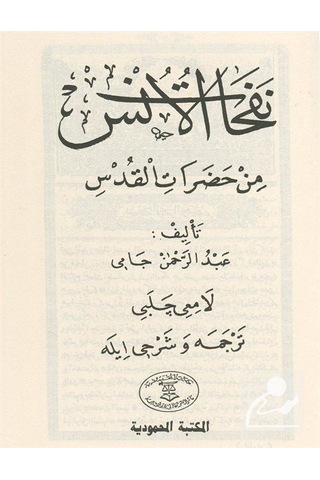 نَفَحَاتُ الْاُنْسِ
مِنْ حَضَرَاتِ الْقُدْسِ
تَأْلِيفْ :
عَبْدُ الرَّحْمٰنْ جَامِى
لَامِعِى چَلَبِي
تَرْجَمَه وَ شَرْحِى اِيلَه
المكتبة المحمودية